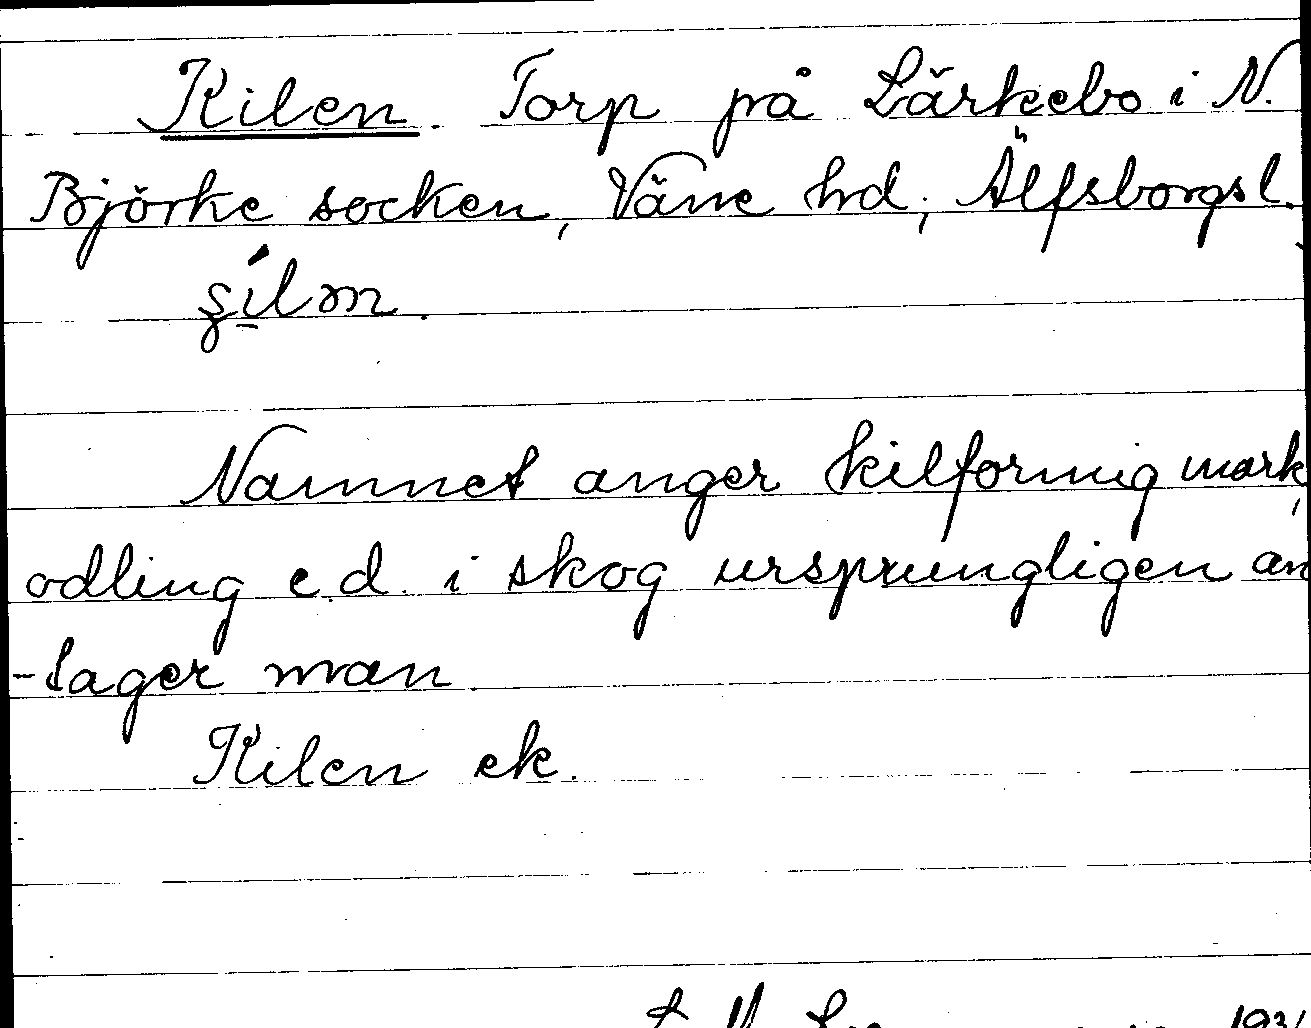 Kilen. Torp på Lärkebo i N.
Björke socken, Väne hd, Älfsborgs l.
Namnet anger kilformig mark,
odling e.d. i skog ursprungligen an
-tager man
Kilen ek.